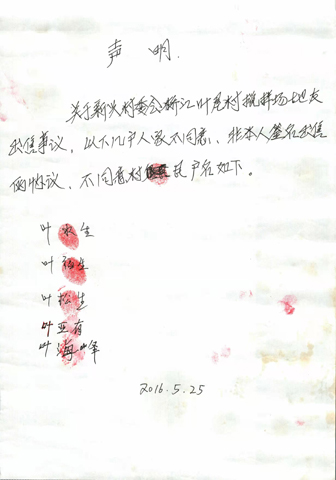 声明
关于新兴村委会桥江叶屋村搅拌场地皮
出售事议，以下几户人家不同意、非本人签名出售
的协议，不同意村民户名如下。
叶水生
叶福生
叶松生
叶亚有
叶海峰
2016.5.25